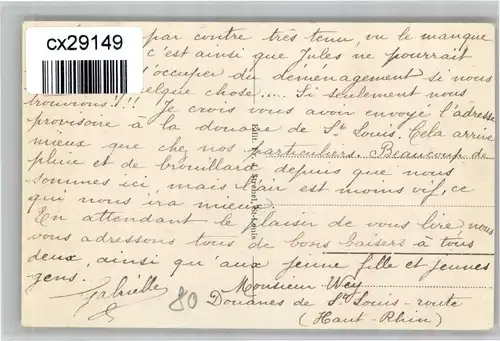 cx29149
par contre très tenu, vu le manque
c'est ainsi que Jules ne pourrait
s'occuper du déménagement si nous
quelque chose.... Si seulement nous
trouvions!!! Je crois vous avoir envoyé l'adresse
provisoire à la douane de St Louis. Cela arrive
mieux que chez nos particuliers. Beaucoup de
pluie et de brouillard depuis que nous
sommes ici, mais l'air est moins vif, ce
qui nous ira mieux.
En attendant le plaisir de vous lire nous
vous adressons tous de bons baisers à tous
deux, ainsi qu'aux jeune fille et jeunes
gens.
Gabrielle
80
Monsieur Wey
Douanes de St Louis-route
(Haut-Rhin)